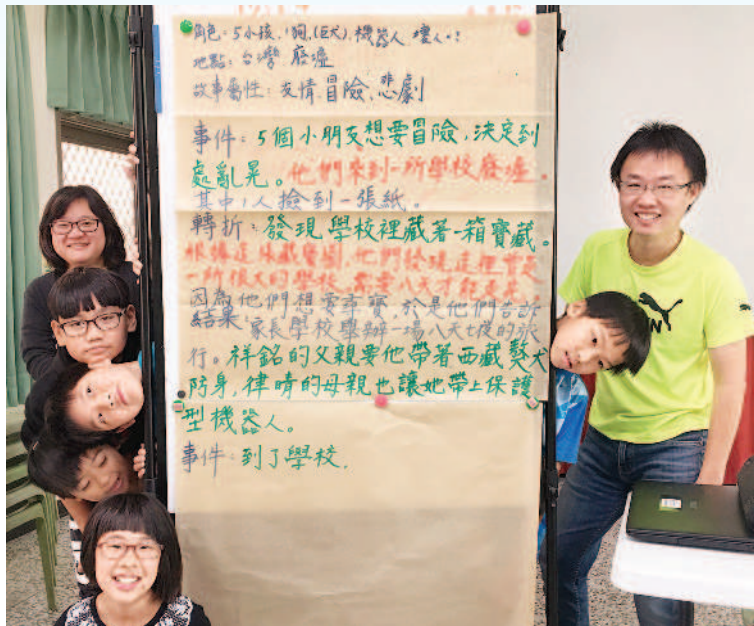 角色:5小孩,1狗,(巨犬),機器人,壞人..?
地點:台灣 廢墟
故事屬性:友情,冒險,悲劇
事件:5個小朋友想要冒險,決定到
處亂晃。他們來到一所學校廢墟。
其中1人撿到一張紙。
轉折:發現學校裡藏著一箱寶藏。
根據這張藏寶圖,他們發現這裡曾是
一所很大的學校,需要八天才能走完
因為他們想要尋寶,於是他們告訴
結果:家長學校舉辦一場八天七夜的旅
行。祥銘的父親要他帶著西藏獒犬
防身,律晴的母親也讓她帶上保護
型機器人。
事件:到了學校,
PUMA